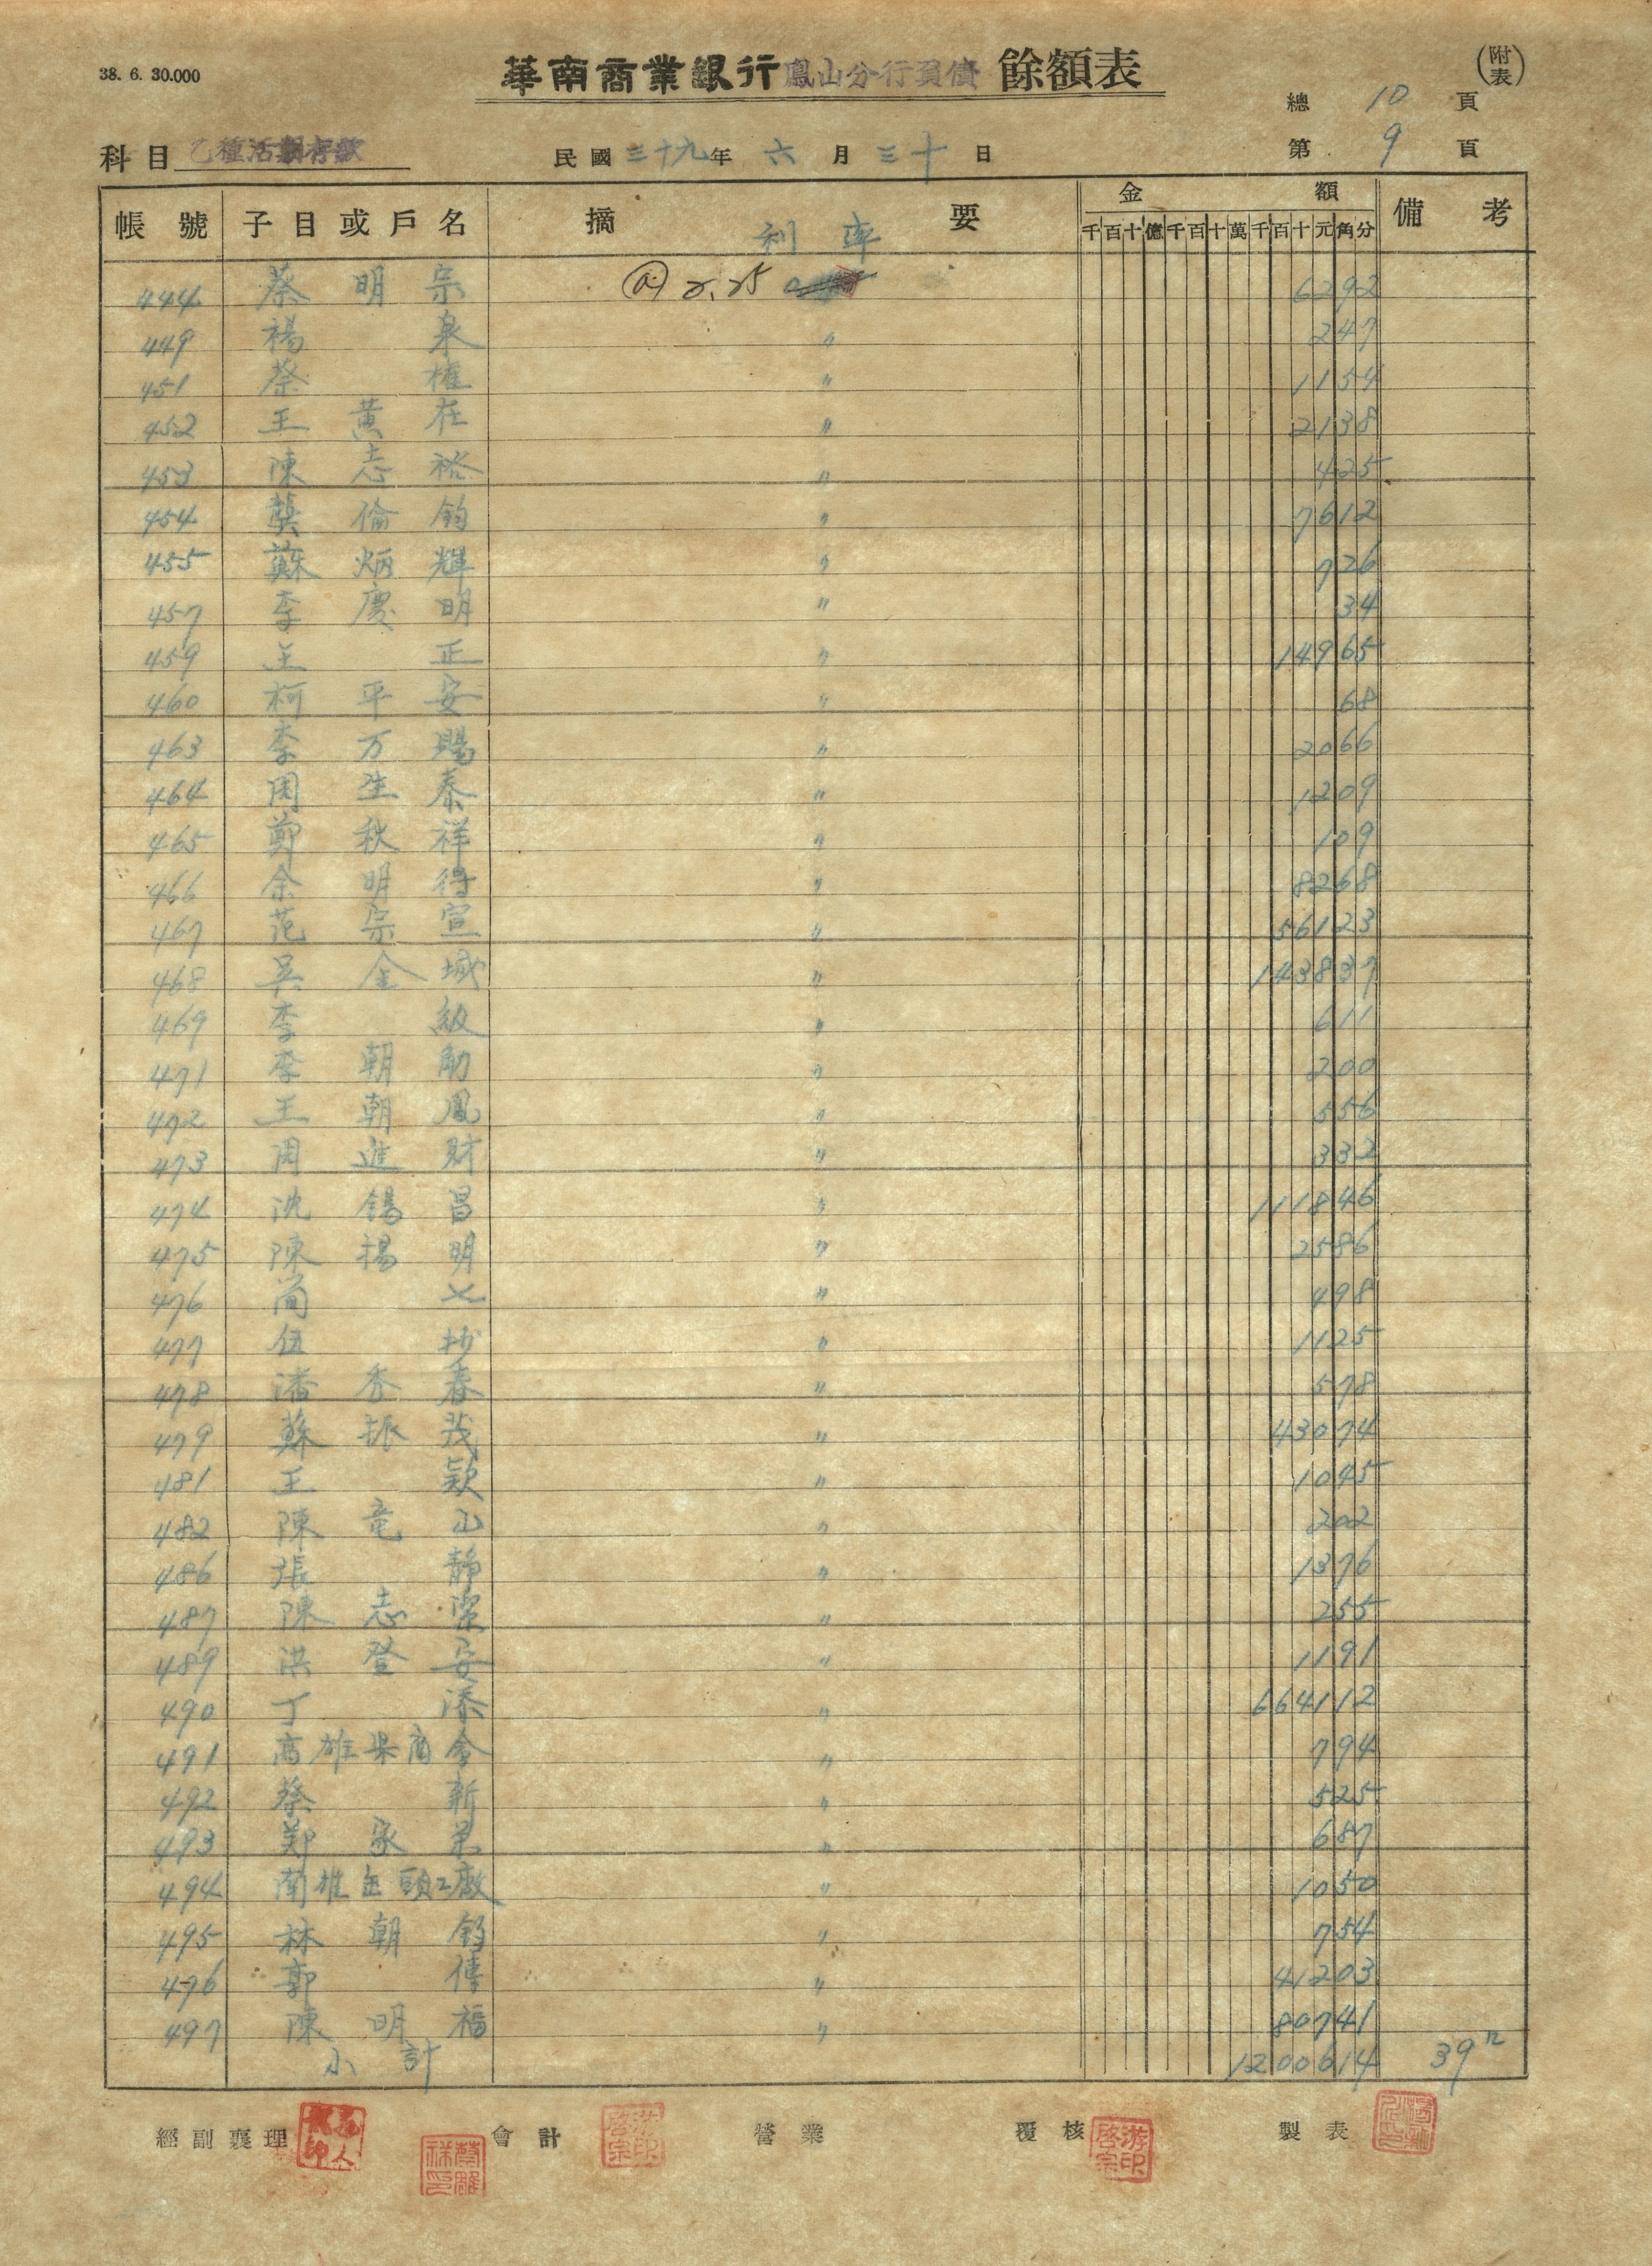 38. 6. 30.000
華南商業銀行鳳山分行負債餘額表
(附表)
總 10 頁
科目 乙種活期存款 民國三十九年六月三十日 第 9 頁
帳號 子目或戶名 摘要 利率 金額 備考
千百十億千百十萬千百十元角分
444 蔡明宗 @ 2.25 6292
449 楊泉 〃 247
451 蔡權 〃 1154
452 王黃在 〃 2138
453 陳志裕 〃 425
454 龔倫鈞 〃 7612
455 蘇炳輝 〃 726
457 李慶明 〃 34
459 王正 〃 14965
460 柯平安 〃 68
463 李万賜 〃 2066
464 周生泰 〃 1209
465 鄭秋祥 〃 109
466 余明得 〃 8268
467 范宗宣 〃 56123
468 吳金城 〃 143837
469 李級 〃 611
471 李朝助 〃 200
472 王朝鳳 〃 556
473 周進財 〃 332
474 沈錫昌 〃 111846
475 陳揚明 〃 2586
476 簡 〃 498
477 伍抄 〃 1125
478 潘秀春 〃 578
479 蘇振茂 〃 43074
481 王 〃 1045
482 陳竜山 〃 202
486 張靜 〃 1376
487 陳志潔 〃 255
489 洪登安 〃 1191
490 丁添 〃 664112
491 高雄県商會 〃 794
492 蔡新 〃 525
493 鄭家 〃 687
494 南雄缶頭工廠 〃 1050
495 林朝鈞 〃 754
496 郭傳 〃 41203
497 陳明福 〃 80741
小計 1200614 39
經副襄理 會計 營業 覆核 製表
游印啓宗
游印啓宗